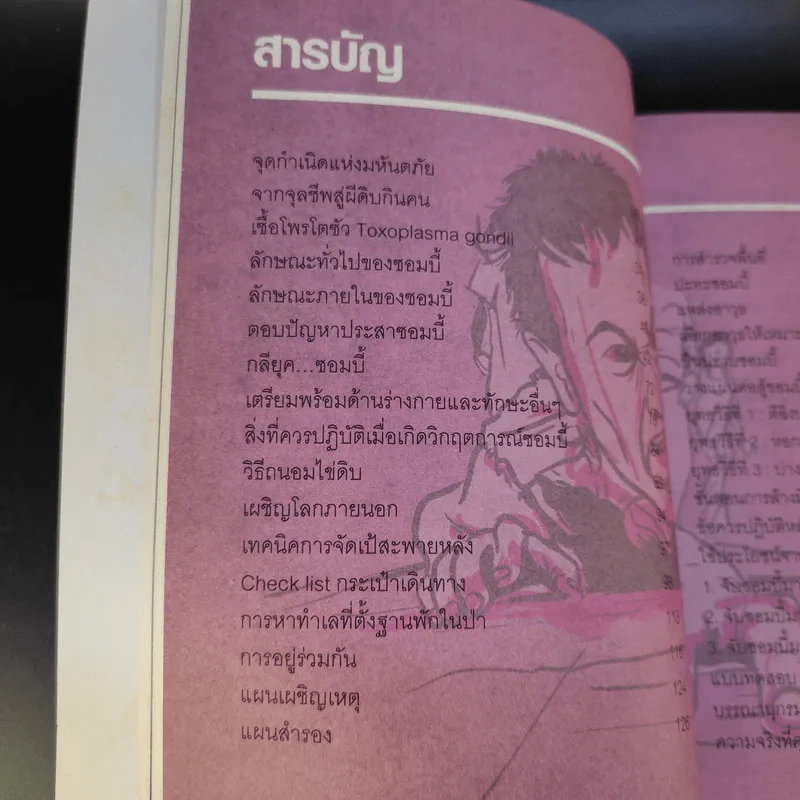 สารบัญ
จุดกำเนิดแห่งมหันตภัย
จากจุลชีพสู่ผีดิบกินคน
เชื้อโพรโตซัว Toxoplasma gondii
ลักษณะทั่วไปของซอมบี้
ลักษณะภายในของซอมบี้
ตอบปัญหาประสาซอมบี้
กลียุค...ซอมบี้
เตรียมพร้อมด้านร่างกายและทักษะอื่นๆ
สิ่งที่ควรปฏิบัติเมื่อเกิดวิกฤตการณ์ซอมบี้
วิธีถนอมไข่ดิบ
เผชิญโลกภายนอก
เทคนิคการจัดเป้สะพายหลัง
Check list กระเป๋าเดินทาง 98
การหาทำเลที่ตั้งฐานพักในป่า 110
การอยู่ร่วมกัน 116
แผนเผชิญเหตุ 124
แผนสำรอง 126
การสำรวจพื้นที่
ปะทะซอมบี้
แหล่งอาวุธ
วางแผนต่อสู้ซอมบี้
ยุทธวิธีที่ 1 :
ยุทธวิธีที่ 2 :
ยุทธวิธีที่ 3 :
ขั้นตอนการล้าง
ข้อควรปฏิบัติ
ใช้ประโยชน์จาก
1. จับซอมบี้มา
2. จับซอมบี้
3. จับซอมบี้
แบบทดสอบ
บรรณานุกรม
ความจริงที่